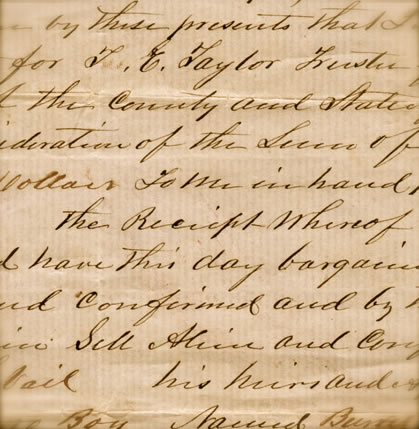 by these presents that I
for T. E. Taylor Trustee
the County and State
ideration of the Sum of
Dollars To Me in hand
the Receipt Whereof
have this day bargain
nd Confirmed and by
Sell Alien and Con
his heirs and
Boy Named